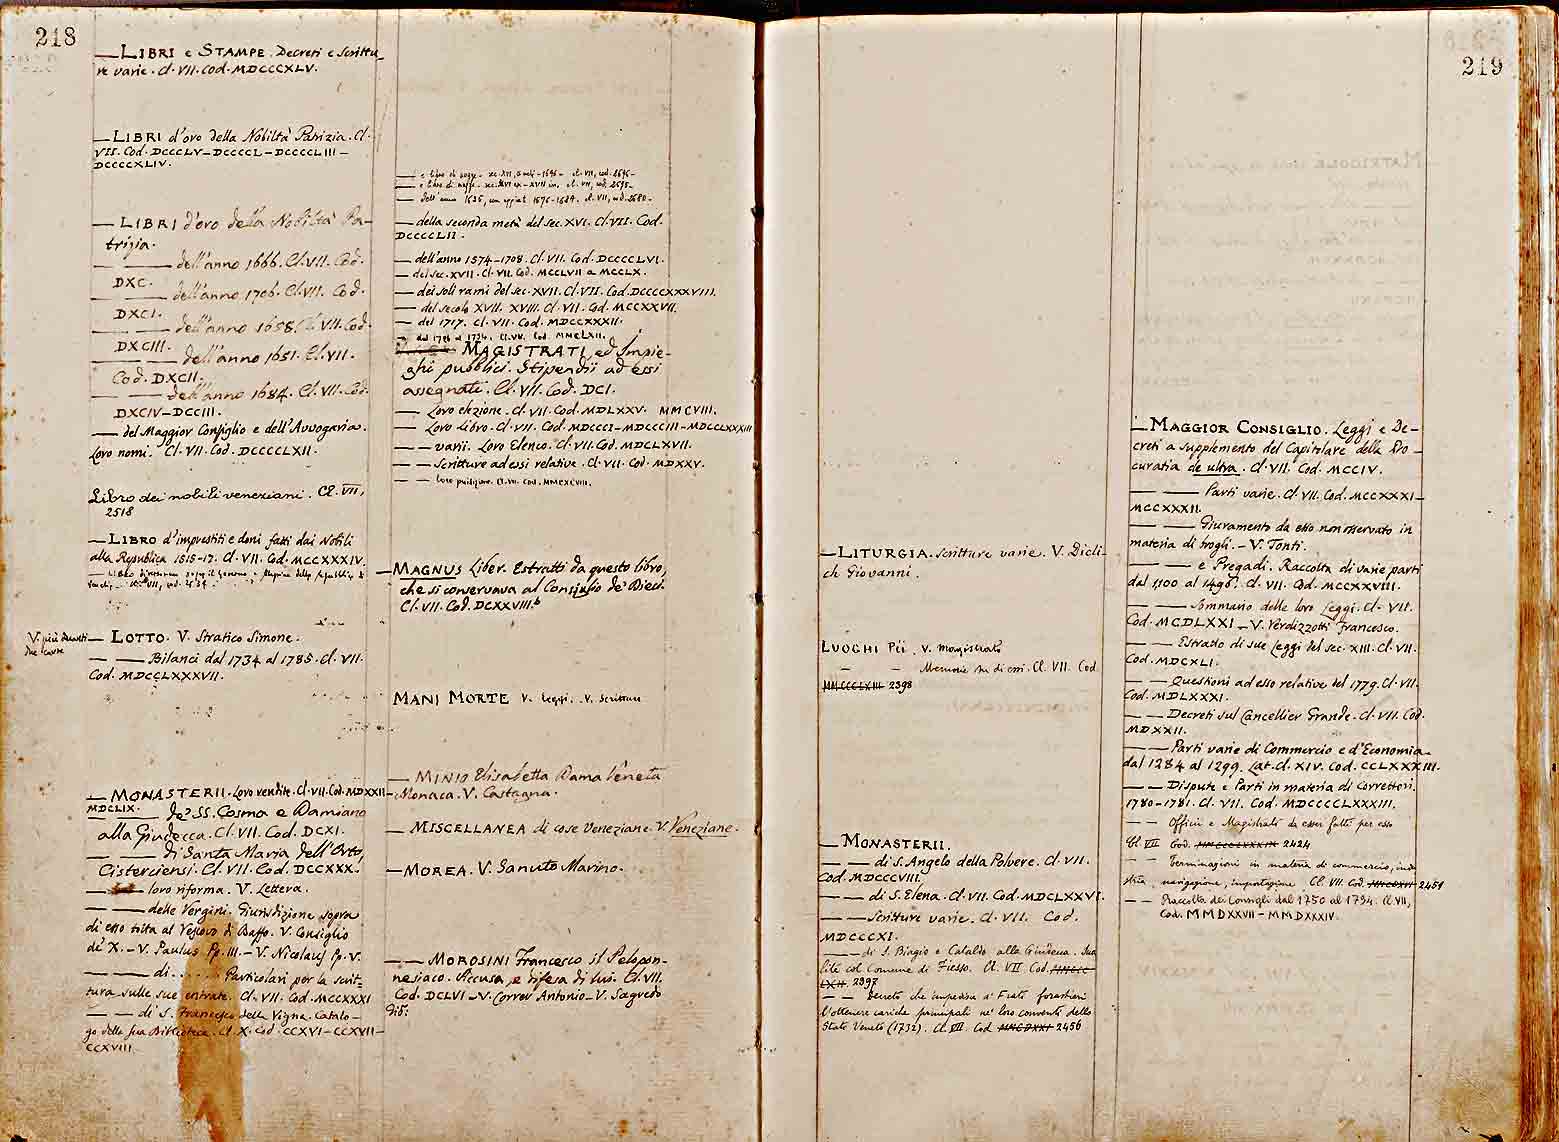 218
— LIBRI e STAMPE. Decreti e Scrittu-
re varie. Cl. VII. Cod. MDCCCXLV.
— LIBRI d'oro della Nobiltà Patrizia. Cl.
VII. Cod. DCCCLV — DCCCCL — DCCCCLIII —
DCCCCXLIV.
— LIBRI d'oro della Nobiltà Pa-
trizia.
— — dell'anno 1666. Cl. VII. Cod.
DXC.
— — dell'anno 1706. Cl. VII. Cod.
DXCI.
— — dell'anno 1658. Cl. VII. Cod.
DXCIII.
— — dell'anno 1651. Cl. VII.
Cod. DXCII.
— — dell'anno 1684. Cl. VII. Cod.
DXCIV — DCCIII.
— del Maggior Consiglio e dell'Avvogaria.
Loro nomi. Cl. VII. Cod. DCCCCLXII.
Libro dei nobili veneziani. Cl. VII,
2518
— LIBRO d'imprestiti e doni fatti dai Nobili
alla Republica 1515-17. Cl. VII. Cod. MCCXXXIV.
V. più avanti
due carte
— LOTTO. V. Stratico Simone.
— — Bilanci dal 1734 al 1785. Cl. VII.
Cod. MDCCLXXXVII.
— MONASTERII. Loro vendite. Cl. VII. Cod. MDXXII —
MDCLIX. de' SS. Cosma e Damiano
alla Giudecca. Cl. VII. Cod. DCXI.
— — di Santa Maria dell'Orto,
Cisterciensi. Cl. VII. Cod. DCCXXX.
— loro riforma. V. Lettera.
— — delle Vergini. Giurisdizione sopra
di esso tolta al Vescovo di Baffo. V. Consiglio
de' X. — V. Paulus Pp. III. — V. Nicolaus Pp. V.
— — di..... Particolari per la scrit-
tura sulle sue entrate. Cl. VII. Cod. MCCXXXI
— — di S. Francesco della Vigna. Catalo-
go della sua Biblioteca. Cl. X. Cod. CCXVI — CCXVII —
CCXVIII.
— della seconda metà del sec. XVI. Cl. VII. Cod.
DCCCCLII.
— dell'anno 1574-1708. Cl. VII. Cod. DCCCCLVI.
— del sec. XVII. Cl. VII. Cod. MCCLVII a MCCLX.
— dei soli rami del sec. XVII. Cl. VII. Cod. DCCCCXXXVIII.
— del secolo XVII. XVIII. Cl. VII. Cod. MCCXXVII.
— del 1717. Cl. VII. Cod. MDCCXXXII.
Cl. VII. Cod. MMCLXII.
MAGISTRATI, ed Impie-
ghi pubblici. Stipendii ad essi
assegnati. Cl. VII. Cod. DCI.
— — Loro elezione. Cl. VII. Cod. MDLXXV. MMCVIII.
— — Loro Libro. Cl. VII. Cod. MDCCCI — MDCCCIII — MDCCLXXXIII
— — varii. Loro Elenco. Cl. VII. Cod. MDCLXVII.
— — Scritture ad essi relative. Cl. VII. Cod. MDXXV.
— — Cl. VII. Cod. MMCXCVIII.
— MAGNUS Liber. Estratti da questo libro,
che si conservava al Consiglio de' Dieci.
Cl. VII. Cod. DCXXVIII.b
MANI MORTE V. Leggi. V. Scritture
— MINIO Elisabetta Dama Veneta
Monaca. V. Castagna.
— MISCELLANEA di cose Veneziane. V. Veneziane.
— MOREA. V. Sanuto Marino.
— — MOROSINI Francesco il Pelopon-
nesiaco. Accusa, e difesa di lui. Cl. VII.
Cod. DCLVI — V. Correr Antonio — V. Sagredo
219
— LITURGIA. Scritture varie. V. Dicli-
ch Giovanni.
LUOGHI Pii. V. Magistrato
— — Memorie su di essi. Cl. VII. Cod
MMCCCLXIII 2398
— MONASTERII.
— — di S. Angelo della Polvere. Cl. VII.
Cod. MDCCCVIII.
— — di S. Elena. Cl. VII. Cod. MDCLXXVI.
— — Scritture varie. Cl. VII. Cod.
MDCCCXI.
— — di S. Biagio e Cataldo alla Giudecca. Sua
lite col Comune di Fiesso. Cl. VII Cod. MMCCC
LXII. 2397
— — Decreto che impediva a' Frati forastieri
l'ottenere cariche principali ne' loro conventi dello
Stato Veneto (1732). Cl. VII. Cod 2456
— MAGGIOR CONSIGLIO. Leggi e De-
creti a supplemento del Capitolare della Pro-
curatia de ultra. Cl. VII. Cod. MCCIV.
— — Parti varie. Cl. VII. Cod. MCCXXXI —
MCCXXXII.
— — Giuramento da esso non osservato in
materia di brogli. — V. Tonti.
— — e Pregadi. Raccolta di varie parti
dal 1100 al 1496. Cl. VII. Cod. MCCXXVIII.
— — Sommario delle loro Leggi. Cl. VII.
Cod. MCDLXXI — V. Verdizzotti Francesco.
— — Estratto di sue Leggi del sec. XIII. Cl. VII.
Cod. MDCXLI.
— — Questioni ad esso relative del 1779. Cl. VII.
Cod. MDLXXXI.
— — Decreti sul Cancellier Grande. Cl. VII. Cod.
MDXXII.
— — Parti varie di Commercio e d'Economia
dal 1284 al 1299. Lat. Cl. XIV. Cod. CCLXXXIII.
— — Dispute e Parti in materia di Correttori.
1780-1781. Cl. VII. Cod. MDCCCCLXXXIII.
— — Officii e Magistrati da esser fatti per esso
Cl. VII Cod. 2424
— — Terminazioni in materia di commercio, indu
stria, navigazione, importazione. Cl. VII. Cod. 2451
— — Raccolta de' Consigli dal 1750 al 1794. Cl. VII,
Cod. MMDXXVII — MMDXXXIV.